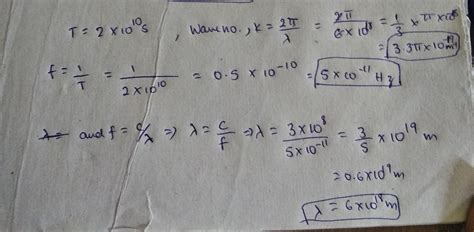 T = 2 × 10¹⁰s , Wave no., K = 2π/λ = 2π/6×10¹⁸ = 1/3 × π × 10
= 3.3π × 10
f = 1/T = 1/2×10¹⁰ = 0.5 × 10⁻¹⁰ = 5×10⁻¹¹ Hz
and f = c/λ ⇒ λ = c/f ⇒ λ = 3×10⁸/5×10⁻¹¹ = 3/5 × 10¹⁹ m
= 0.6×10¹⁹ m
λ = 6×10¹⁸ m